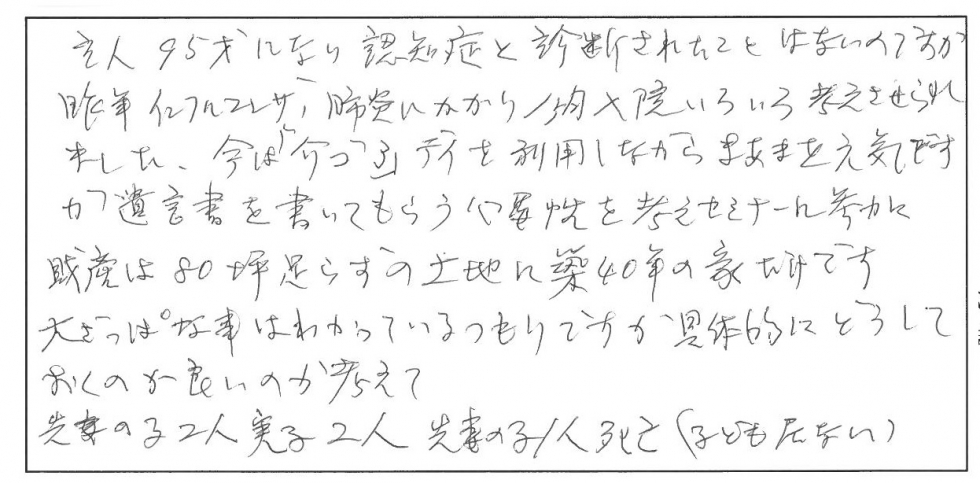 主人 95才になり認知症と診断されたことはないのですが
昨年インフルエンザ、肺炎にかかり入院いろいろ考えさせられ
ました、今は「介ゴ3」デイを利用しながらまあまあ元気です
が遺言書を書いてもらう必要性を考えセミナーに参加
財産は80坪足らずの土地に築40年の家だけです
大ざっぱな事はわかっているつもりですが具体的にどうして
おくのが良いのか考えて
先妻の子2人実子2人 先妻の子1人死亡(子ども居ない)